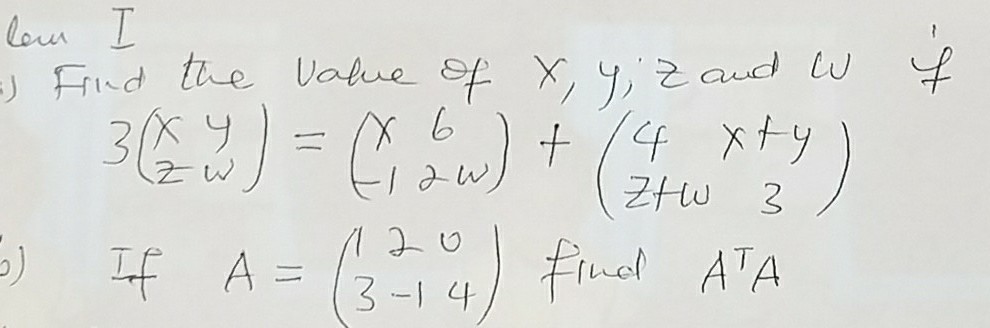 I
a) Find the value of x, y, z and w if
3(x y
z w) = (x 6
-1 2w) + (4 x+y
z+w 3)
b) If A = (1 2 0
3 -1 4) find AᵀA